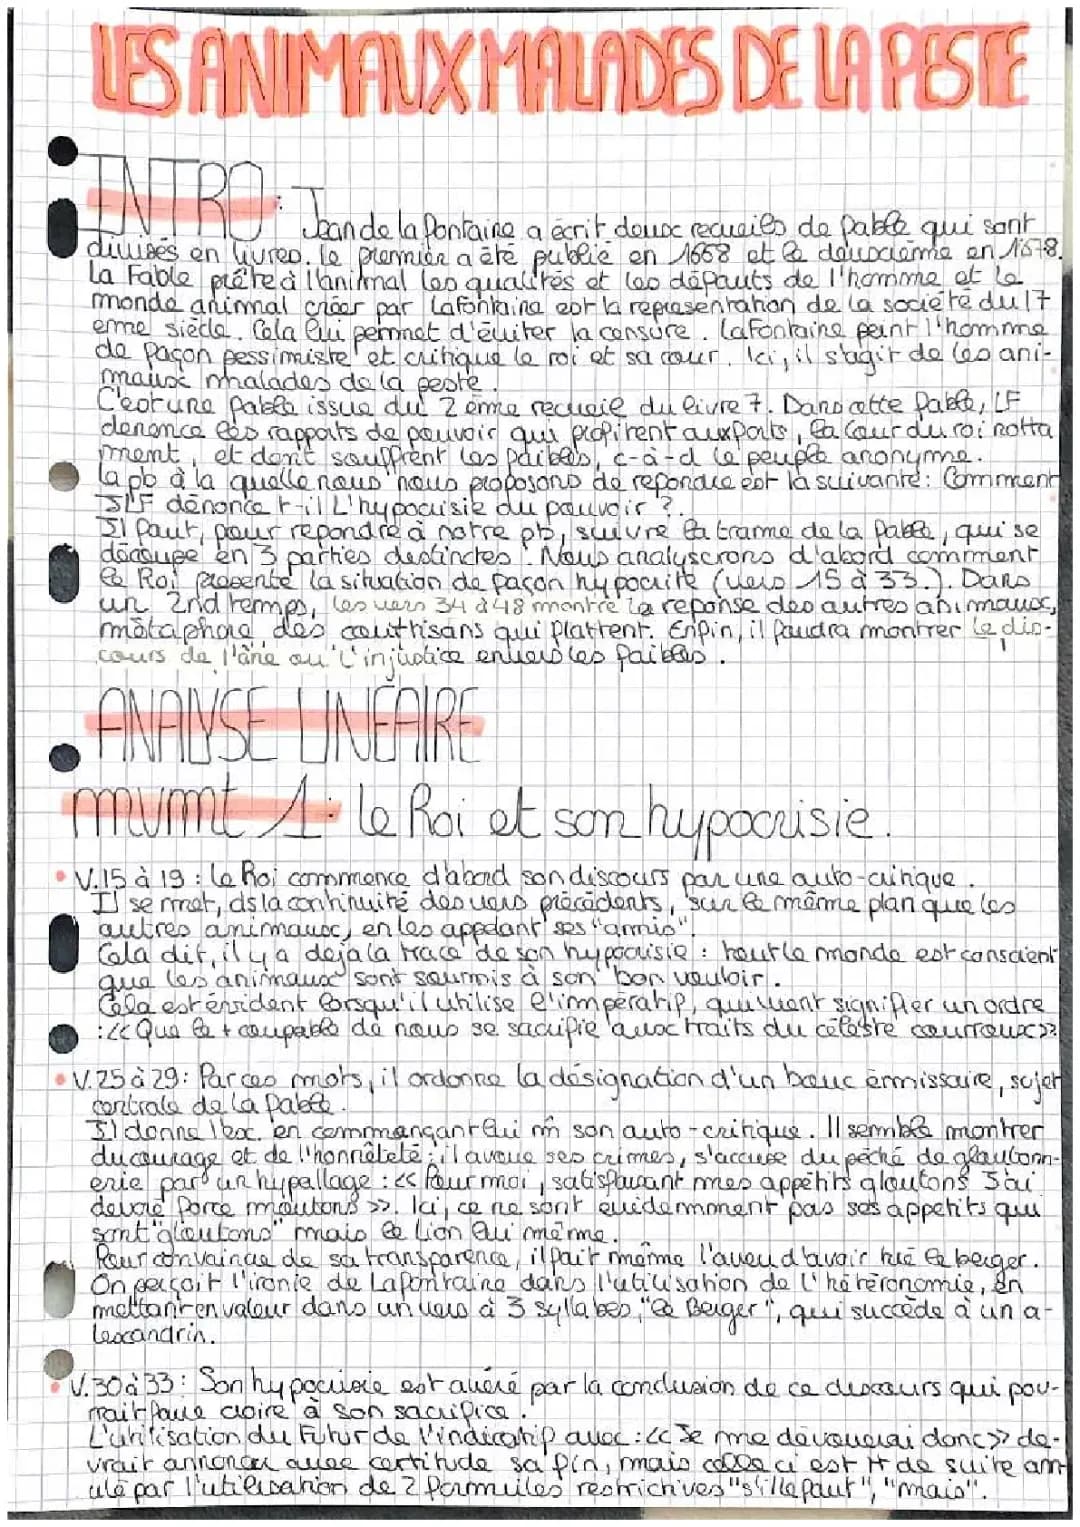 LES ANIMAUX MALADES DE LA PESTE
INTRO : Jean de la Fontaine a écrit deux recueils de fable qui sont
divisés en livres. le premier a été publié en 1668 et le deuxième en 1678.
La Fable prête à l'animal les qualités et les défauts de l'homme et le
monde animal créer par Lafontaine est la représentation de la société du 17
eme siècle. Cela lui permet d'éviter la censure. Lafontaine peint l'homme
de façon pessimiste et critique le roi et sa cour. Ici, il s'agit de les ani-
maux malades de la peste.
C'est une fable issue du 2 ème recueil du livre 7. Dans cette fable, LF
dénonce les rapports de pouvoir qui profitent aux forts, la Cour du roi notta
mment, et dont souffrent les faibles, c-à-d le peuple anonyme.
La pb à la quelle nous nous proposons de répondre est la suivante : Comment
JLF dénonce t-il L'hypocrisie du pouvoir ?
Il faut, pour répondre à notre pb, suivre la trame de la fable, qui se
découpe en 3 parties destinctes. Nous analyserons d'abord comment
le Roi présente la situation de façon hypocrite (vers 15 à 33.). Dans
un 2nd temps, les vers 34 à 48 montre la réponse des autres animaux,
métaphore des courthisans qui flattent. Enfin, il faudra montrer le dis-
cours de l'âne ou l'injustice envers les faibles.
ANALYSE LINÉAIRE
mvmt 1 : le Roi et son hypocrisie.
• V.15 à 19 : le Roi commence d'abord son discours par une auto-critique.
Il se met, ds la continuité des vers précédents, sur le même plan que les
autres animaux, en les appelant ses "amis".
Cela dit, il y a déjà la trace de son hypocrisie : tout le monde est conscient
que les animaux sont soumis à son bon vouloir.
Cela est évident lorsqu'il utilise l'impératif, qui vient signifier un ordre
: << Que le + coupable de nous se sacrifie aux traits du céleste courroux >>
• V.25 à 29 : Par ces mots, il ordonne la désignation d'un bouc émissaire, sujet
centrale de la fable.
Il donne l'ex. en commançant lui m̂ son auto-critique. Il semble montrer
du courage et de l'honnêteté : il avoue ses crimes, s'accuse du péché de gloutonn-
erie par un hypallage : << Pour moi, satisfaisant mes appétits gloutons J'ai
dévoré force moutons >>. Ici, ce ne sont evidemment pas ses appétits qui
sont "gloutons" mais le Lion lui même.
Pour convaincre de sa transparence, il fait même l'aveu d'avoir tué le berger.
On perçoit l'ironie de Lafontaine dans l'utilisation de l'hétéronomie, en
mettant en valeur dans un vers à 3 syllabes, "le Berger", qui succède à un a-
lexandrin.
• V.30 à 33 : Son hypocrisie est avéré par la conclusion de ce discours qui pour-
rait faire croire à son sacrifice.
L'utilisation du Futur de l'indicatif avec : << Je me dévouerai donc >> de-
vrait annoncer avec certitude sa fin, mais celle ci est tt de suite ann-
ulé par l'utilisation de 2 formules restrictives "s'il le faut", "mais".